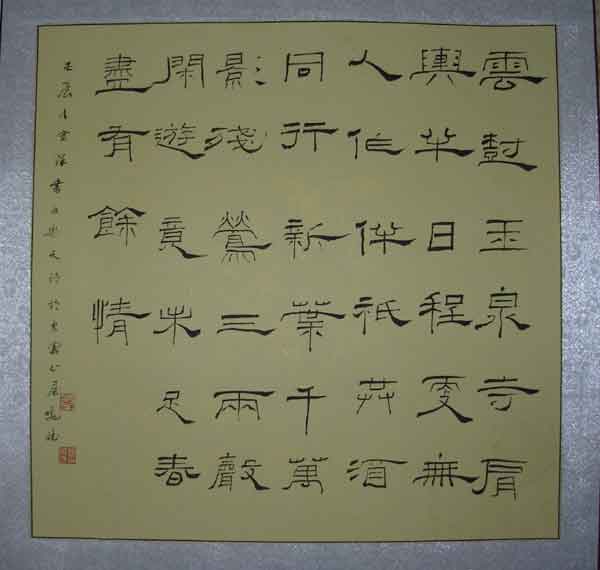 雲樹玉泉寺肩
輿半日程更無
人作伴祇共酒
同行新葉千萬
影殘鶯三兩聲
閑遊竟未足春
盡有餘情
書白樂天詩於